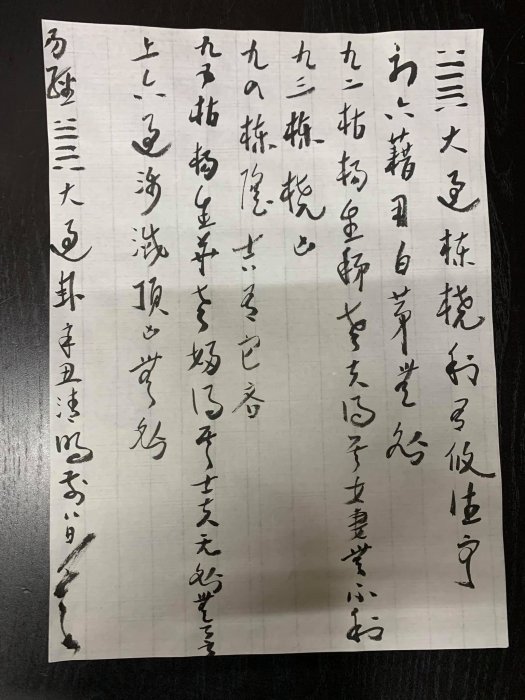 大過棟橈利有攸往亨
初六藉用白茅無咎
九二枯楊生稊老夫得其女妻無不利
九三棟橈凶
九四棟隆吉有它吝
九五枯楊生華老婦得其士夫无咎無譽
上六過涉滅頂凶無咎
易經大過卦辛丑清明前八日